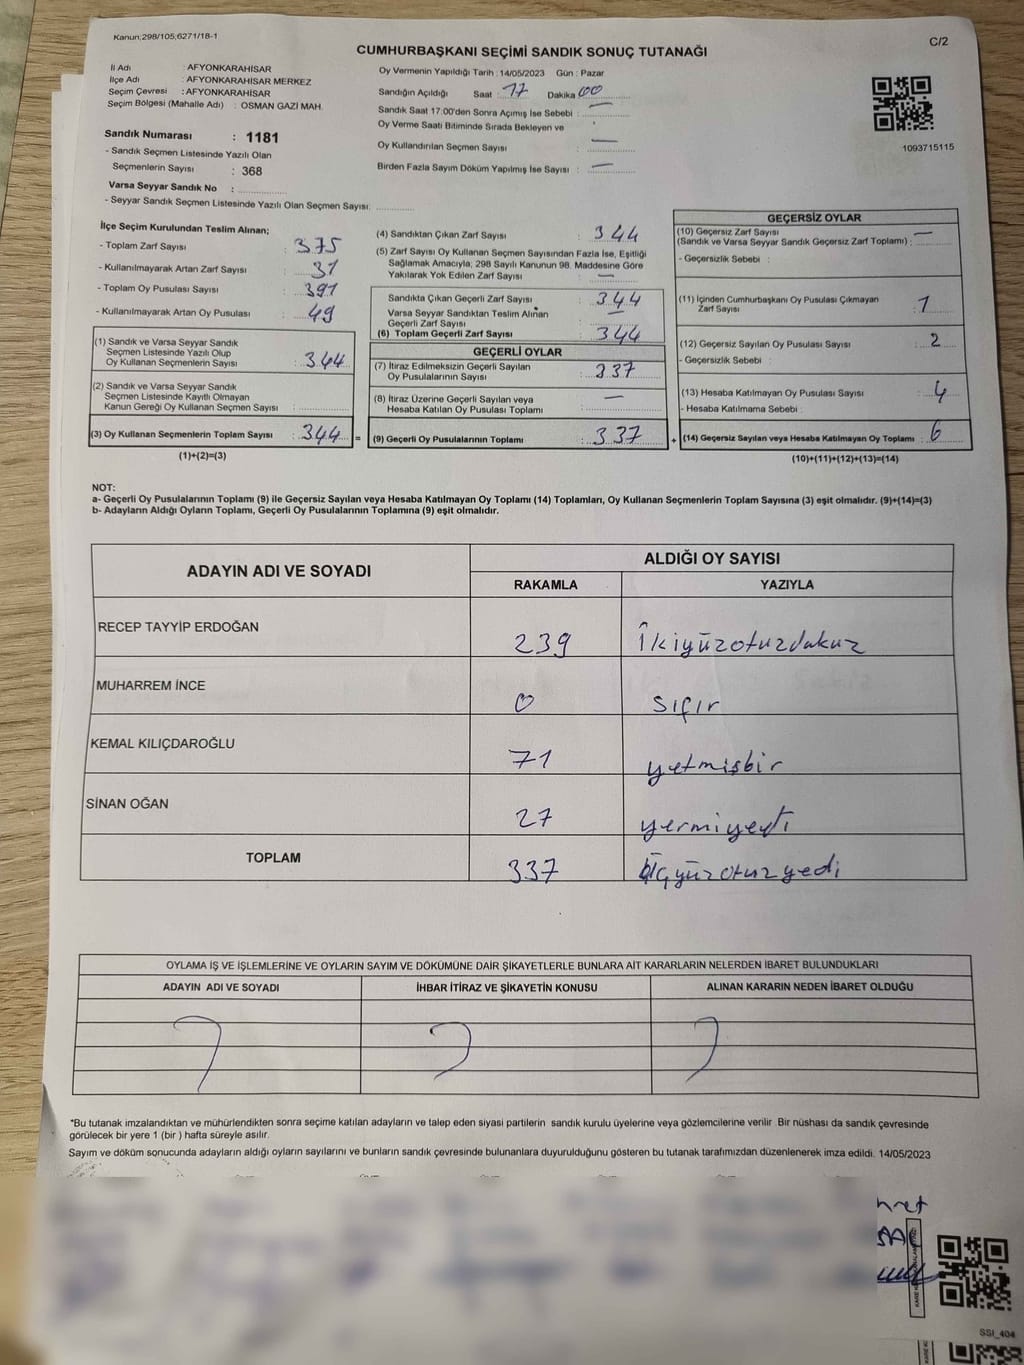 Kanun;298/105;6271/18-1
C/2
CUMHURBAŞKANI SEÇİMİ SANDIK SONUÇ TUTANAĞI
İl Adı : AFYONKARAHİSAR
İlçe Adı : AFYONKARAHİSAR MERKEZ
Seçim Çevresi : AFYONKARAHİSAR
Seçim Bölgesi (Mahalle Adı) : OSMAN GAZİ MAH.
Sandık Numarası : 1181
- Sandık Seçmen Listesinde Yazılı Olan
Seçmenlerin Sayısı : 368
Varsa Seyyar Sandık No :
- Seyyar Sandık Seçmen Listesinde Yazılı Olan Seçmen Sayısı:
Oy Vermenin Yapıldığı Tarih : 14/05/2023 Gün : Pazar
Sandığın Açıldığı Saat : 17 Dakika 00
Sandık Saat 17:00'den Sonra Açımış İse Sebebi : —
Oy Verme Saati Bitiminde Sırada Bekleyen ve
Oy Kullandırılan Seçmen Sayısı : —
Birden Fazla Sayım Döküm Yapılmış İse Sayısı : —
1093715115
İlçe Seçim Kurulundan Teslim Alınan;
- Toplam Zarf Sayısı : 375
- Kullanılmayarak Artan Zarf Sayısı : 31
- Toplam Oy Pusulası Sayısı : 391
- Kullanılmayarak Artan Oy Pusulası : 49
(1) Sandık ve Varsa Seyyar Sandık
Seçmen Listesinde Yazılı Olup
Oy Kullanan Seçmenlerin Sayısı : 344
(2) Sandık ve Varsa Seyyar Sandık
Seçmen Listesinde Kayıtlı Olmayan
Kanun Gereği Oy Kullanan Seçmen Sayısı :
(3) Oy Kullanan Seçmenlerin Toplam Sayısı : 344 =
(1)+(2)=(3)
(4) Sandıktan Çıkan Zarf Sayısı : 344
(5) Zarf Sayısı Oy Kullanan Seçmen Sayısından Fazla İse, Eşitliği
Sağlamak Amacıyla; 298 Sayılı Kanunun 98. Maddesine Göre
Yakılarak Yok Edilen Zarf Sayısı : —
Sandıkta Çıkan Geçerli Zarf Sayısı : 344
Varsa Seyyar Sandıktan Teslim Alınan
Geçerli Zarf Sayısı : —
(6) Toplam Geçerli Zarf Sayısı : 344
GEÇERLİ OYLAR
(7) İtiraz Edilmeksizin Geçerli Sayılan
Oy Pusulalarının Sayısı : 337
(8) İtiraz Üzerine Geçerli Sayılan veya
Hesaba Katılan Oy Pusulası Toplamı : —
(9) Geçerli Oy Pusulalarının Toplamı : 337 +
GEÇERSİZ OYLAR
(10) Geçersiz Zarf Sayısı —
(Sandık ve Varsa Seyyar Sandık Geçersiz Zarf Toplamı) :
- Geçersizlik Sebebi :
(11) İçinden Cumhurbaşkanı Oy Pusulası Çıkmayan
Zarf Sayısı : 1
(12) Geçersiz Sayılan Oy Pusulası Sayısı : 2
- Geçersizlik Sebebi :
(13) Hesaba Katılmayan Oy Pusulası Sayısı : 4
- Hesaba Katılmama Sebebi :
(14) Geçersiz Sayılan veya Hesaba Katılmayan Oy Toplamı : 6
(10)+(11)+(12)+(13)=(14)
NOT:
a- Geçerli Oy Pusulalarının Toplamı (9) ile Geçersiz Sayılan veya Hesaba Katılmayan Oy Toplamı (14) Toplamları, Oy Kullanan Seçmenlerin Toplam Sayısına (3) eşit olmalıdır. (9)+(14)=(3)
b- Adayların Aldığı Oyların Toplamı, Geçerli Oy Pusulalarının Toplamına (9) eşit olmalıdır.
ADAYIN ADI VE SOYADI
ALDIĞI OY SAYISI
RAKAMLA YAZIYLA
RECEP TAYYİP ERDOĞAN 239 İkiyüzotuzdokuz
MUHARREM İNCE 0 sıfır
KEMAL KILIÇDAROĞLU 71 yetmişbir
SİNAN OĞAN 27 yermiyedi
TOPLAM 337 üçyüzotuzyedi
OYLAMA İŞ VE İŞLEMLERİNE VE OYLARIN SAYIM VE DÖKÜMÜNE DAİR ŞİKAYETLERLE BUNLARA AİT KARARLARIN NELERDEN İBARET BULUNDUKLARI
ADAYIN ADI VE SOYADI İHBAR İTİRAZ VE ŞİKAYETİN KONUSU ALINAN KARARIN NEDEN İBARET OLDUĞU
*Bu tutanak imzalandıktan ve mühürlendikten sonra seçime katılan adayların ve talep eden siyasi partilerin sandık kurulu üyelerine veya gözlemcilerine verilir. Bir nüshası da sandık çevresinde
görülecek bir yere 1 (bir ) hafta süreyle asılır.
Sayım ve döküm sonucunda adayların aldığı oyların sayılarını ve bunların sandık çevresinde bulunanlara duyurulduğunu gösteren bu tutanak tarafımızdan düzenlenerek imza edildi. 14/05/2023
SSI_404